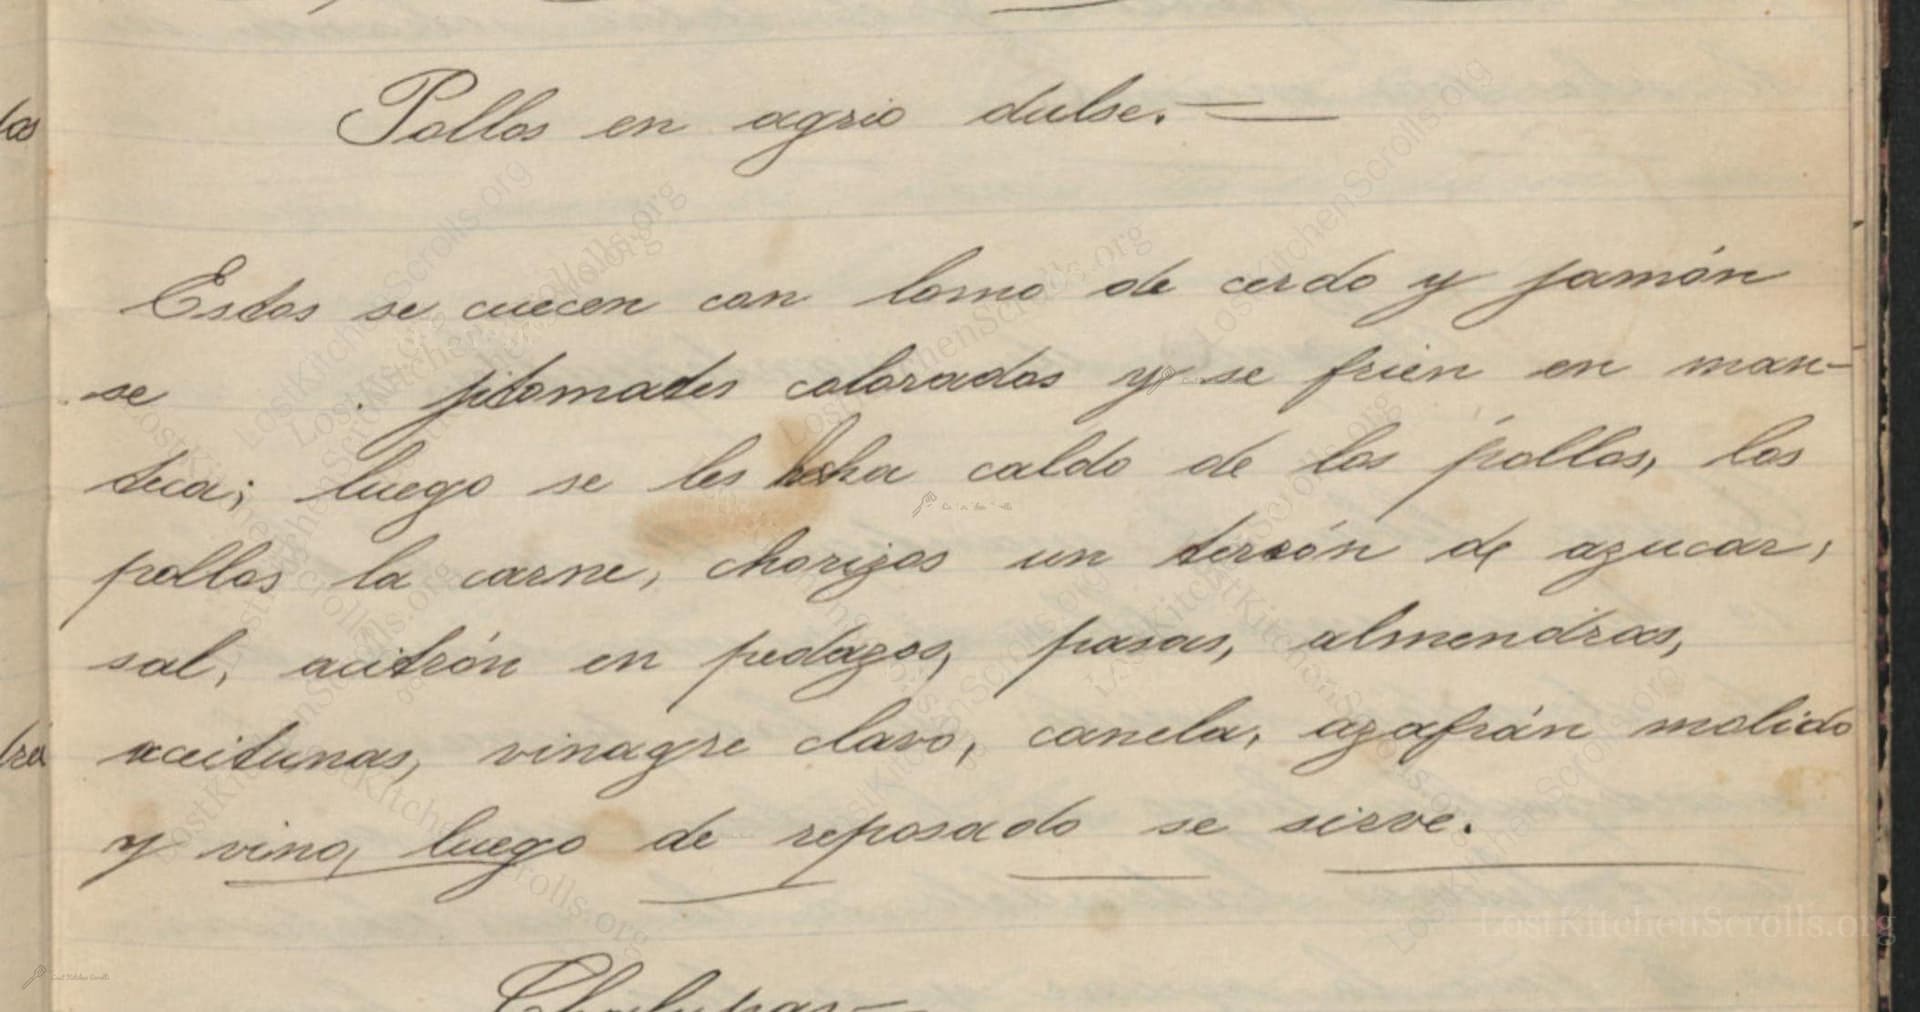 las
Pollos en agrio dulse.
Estos se cuecen con lomo de cerdo y jamón
se jitomates colorados y se frien en man-
teca; luego se les hecha caldo de los pollos, los
pollos la carne, chorizos un tersón de azucar,
sal, acitrón en pedazos, pasas, almendras,
aceitunas, vinagre clavo, canela, azafrán molido
y vino, luego de reposado se sirve.
Chalupas
LostKitchenScrolls.org